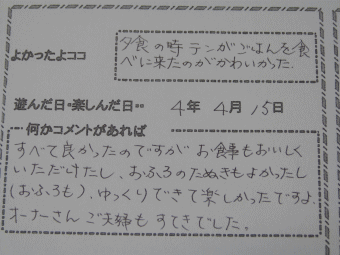 よかったよココ
夕食の時テンがごはんを食
べに来たのがかわいかった.
遊んだ日・楽しんだ日・・ 4年 4月 15日
何かコメントがあれば
すべて良かったのですが お食事もおいしく
いただけたし、おふろのたぬきもよかったし
(おふろも)、ゆっくりできて楽しかったですよ。
オーナーさん ご夫婦も すてきでした。